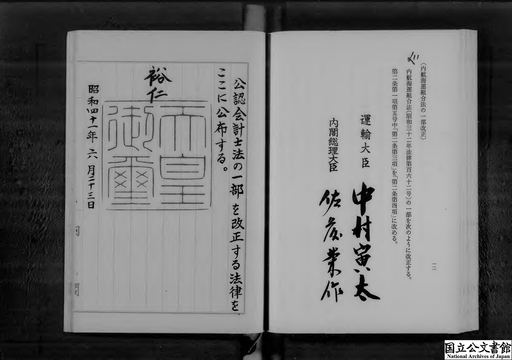 (内航海運組合法の一部改正)
内航海運組合法(昭和三十二年法律第百六十二号)の一部を次のように改正する。
第二条第一項第五号中「第二条第三項」を「第二条第四項」に改める。
一一
運輸大臣 中村寅太
内閣総理大臣 佐藤栄作
公認会計士法の一部を改正する法律を
ここに公布する。
裕仁
天皇
御璽
昭和四十一年六月二十三日
国立公文書館
National Archives of Japan